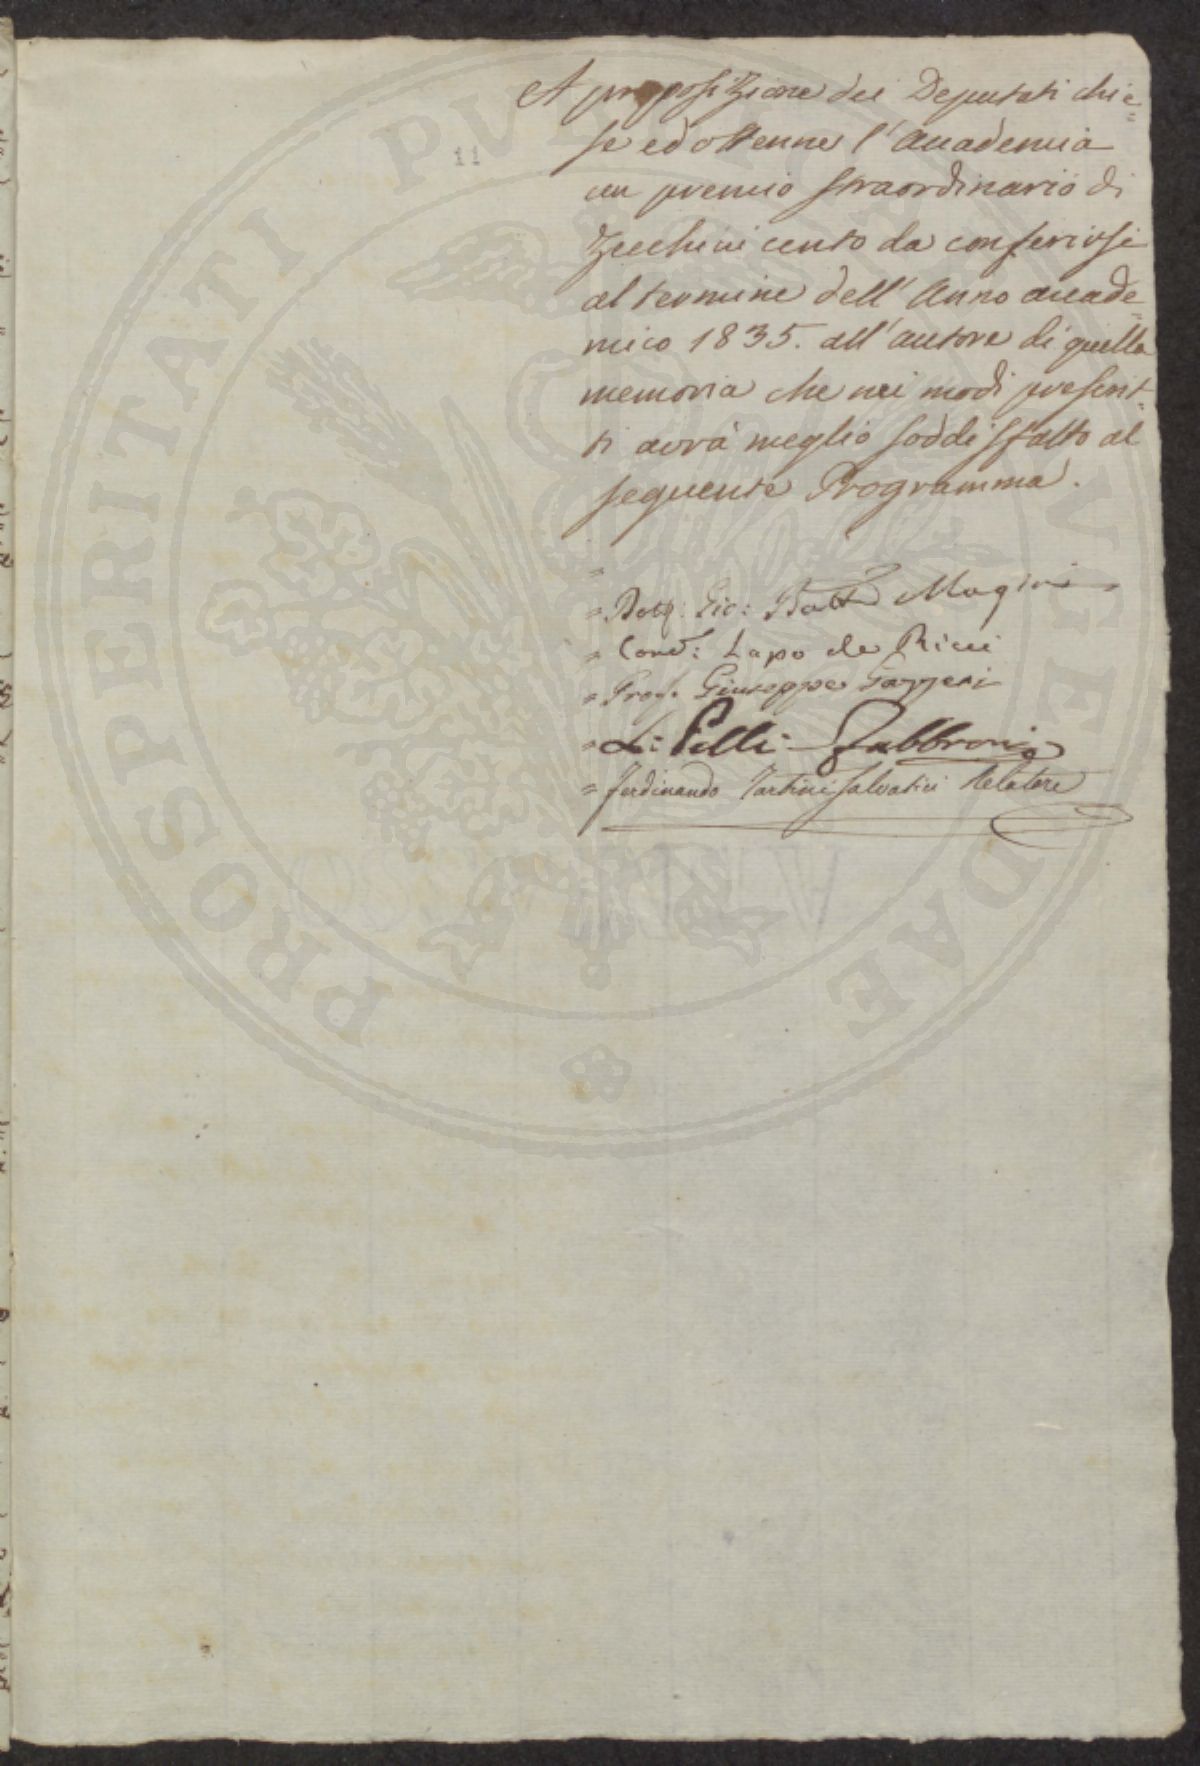 11
A proposizione dei Deputati chie=
se ed ottenne l'Accademia
un premio straordinario di
Zecchini cento da conferirsi
al termine dell'Anno accade=
mico 1835. all'autore di quella
memoria che nei modi prescrit-
ti avrà meglio soddisfatto al
seguente Programma.
= Dott: Gio: Batta Magini
= Cons: Lapo de Ricci
= Prof. Giuseppe Gazzeri
= L: Pelli-Fabbroni
= Ferdinando Tartini Salvatici Relatore
PROSPERITATI PVBLICAE AVGENDAE